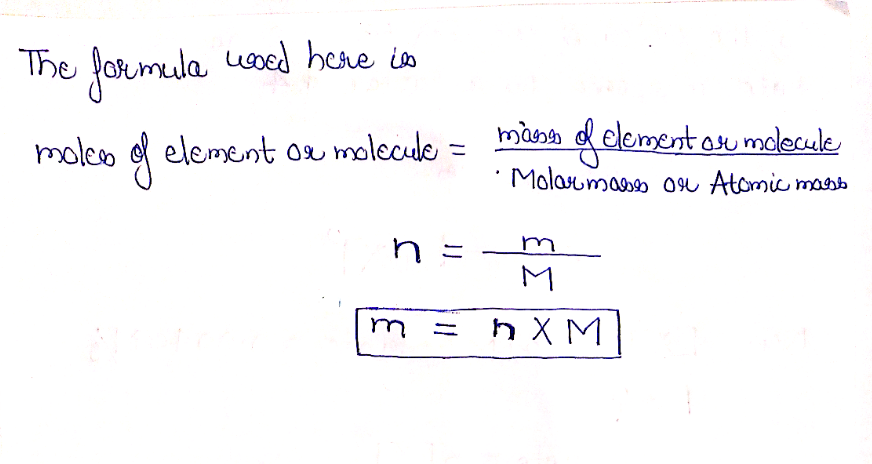 The formula used here is
moles of element or molecule = mass of element or molecule
Molar mass or Atomic mass
n = m
M
m = n X M